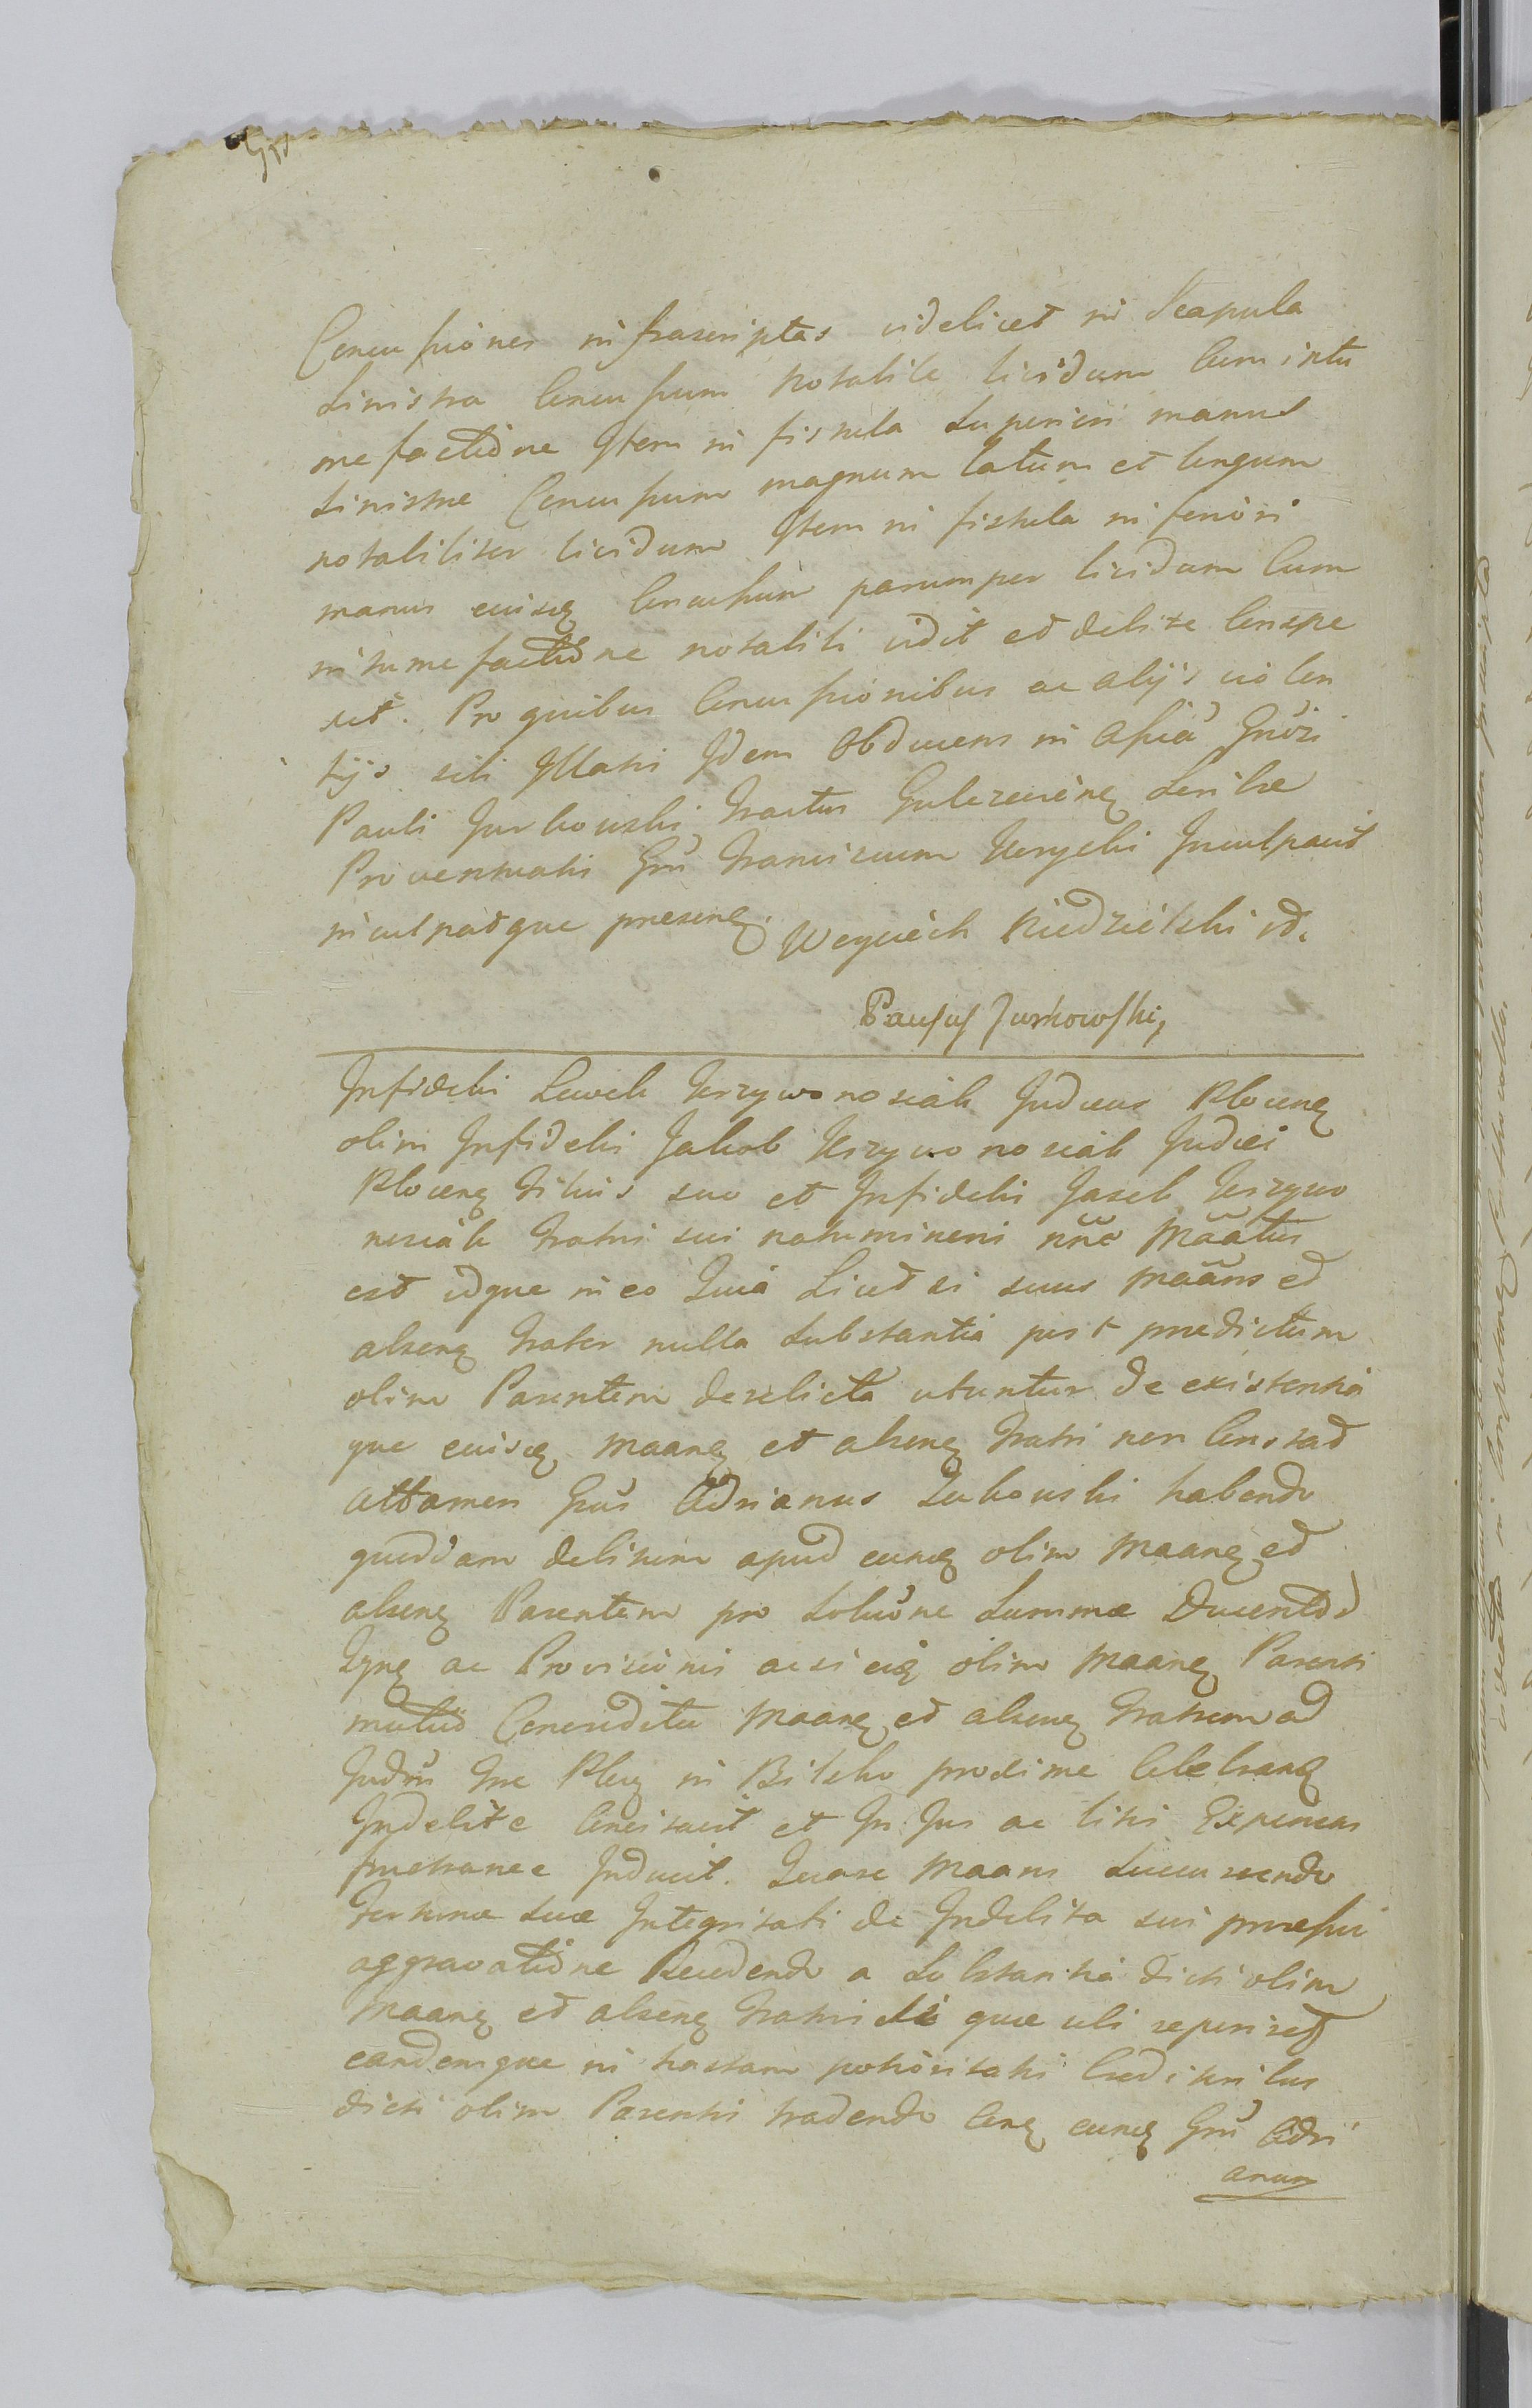 Concussiones infrascriptas videlicet in Scapula
Sinistra Concussum notabile lividum Cum intu
mefactiõne Item in fistula Superiori manus
Sinistrae Concussum magnum latum et longum
notabiliter lividum Item in fistula inferiori
manus eiusq Concussum parumper lividum Cum
intumefactiõne notabili vidit et debite Conspe
xit. Pro quibus Concussionibus ac alijs violen
tijs sibi Illatis Idem Obducens in Assia Gnõsi
Pauli Jurkowski Fratus Gulczewienq Scribae
Proventualis Gnũ Franciscum Inculpavit
inculpatque praesenq. Woyciech Niedzielski
Paulus Jurkowski,
Infidelis Lewek Krzywonosiak Judaeus Plocenq
olim Infidelis Jakob Krzywonosiak Judaei
Plocenq Filius suo et Infidelis Josek Krzywo
nosiak Fratris sui nomineni nñe Mãatus
est idque in eo Quia Licet si suus Mãans et
absenq Frater nulla Substantia post praedictum
olim Parentem derelicta utuntur de existentia
que eiusq Maanq et absenq Fratri non Constat
attamen Gnũs Adrianus Lukowski habendo
quoddam debitum apud eunq olim Maanq et
absenq Parentem pro Soluõne Summae Ducentõr
ac Provisionis ac si eiq olim Maanq Parenti
mutuõ Concredita Maanq et absenq Fratrem ad
Judm̃ Plocq in Bilsko proxime Celebranq
Indebite Concitavit et In Jus ac litis Expensas
frustranee Induxit. Quare Maans Succurrendo
Fortunae Suae Integritati de Indebita sui praemissi
aggravatiõne Recedendo a Substantia dicti olim
Maanq et absenq Fratris Si quae ubi reperiret
eandemque in portioritatis Creditoribus
dicti olim Parentis tradendo Conq eunq Gnũ Adri
anum